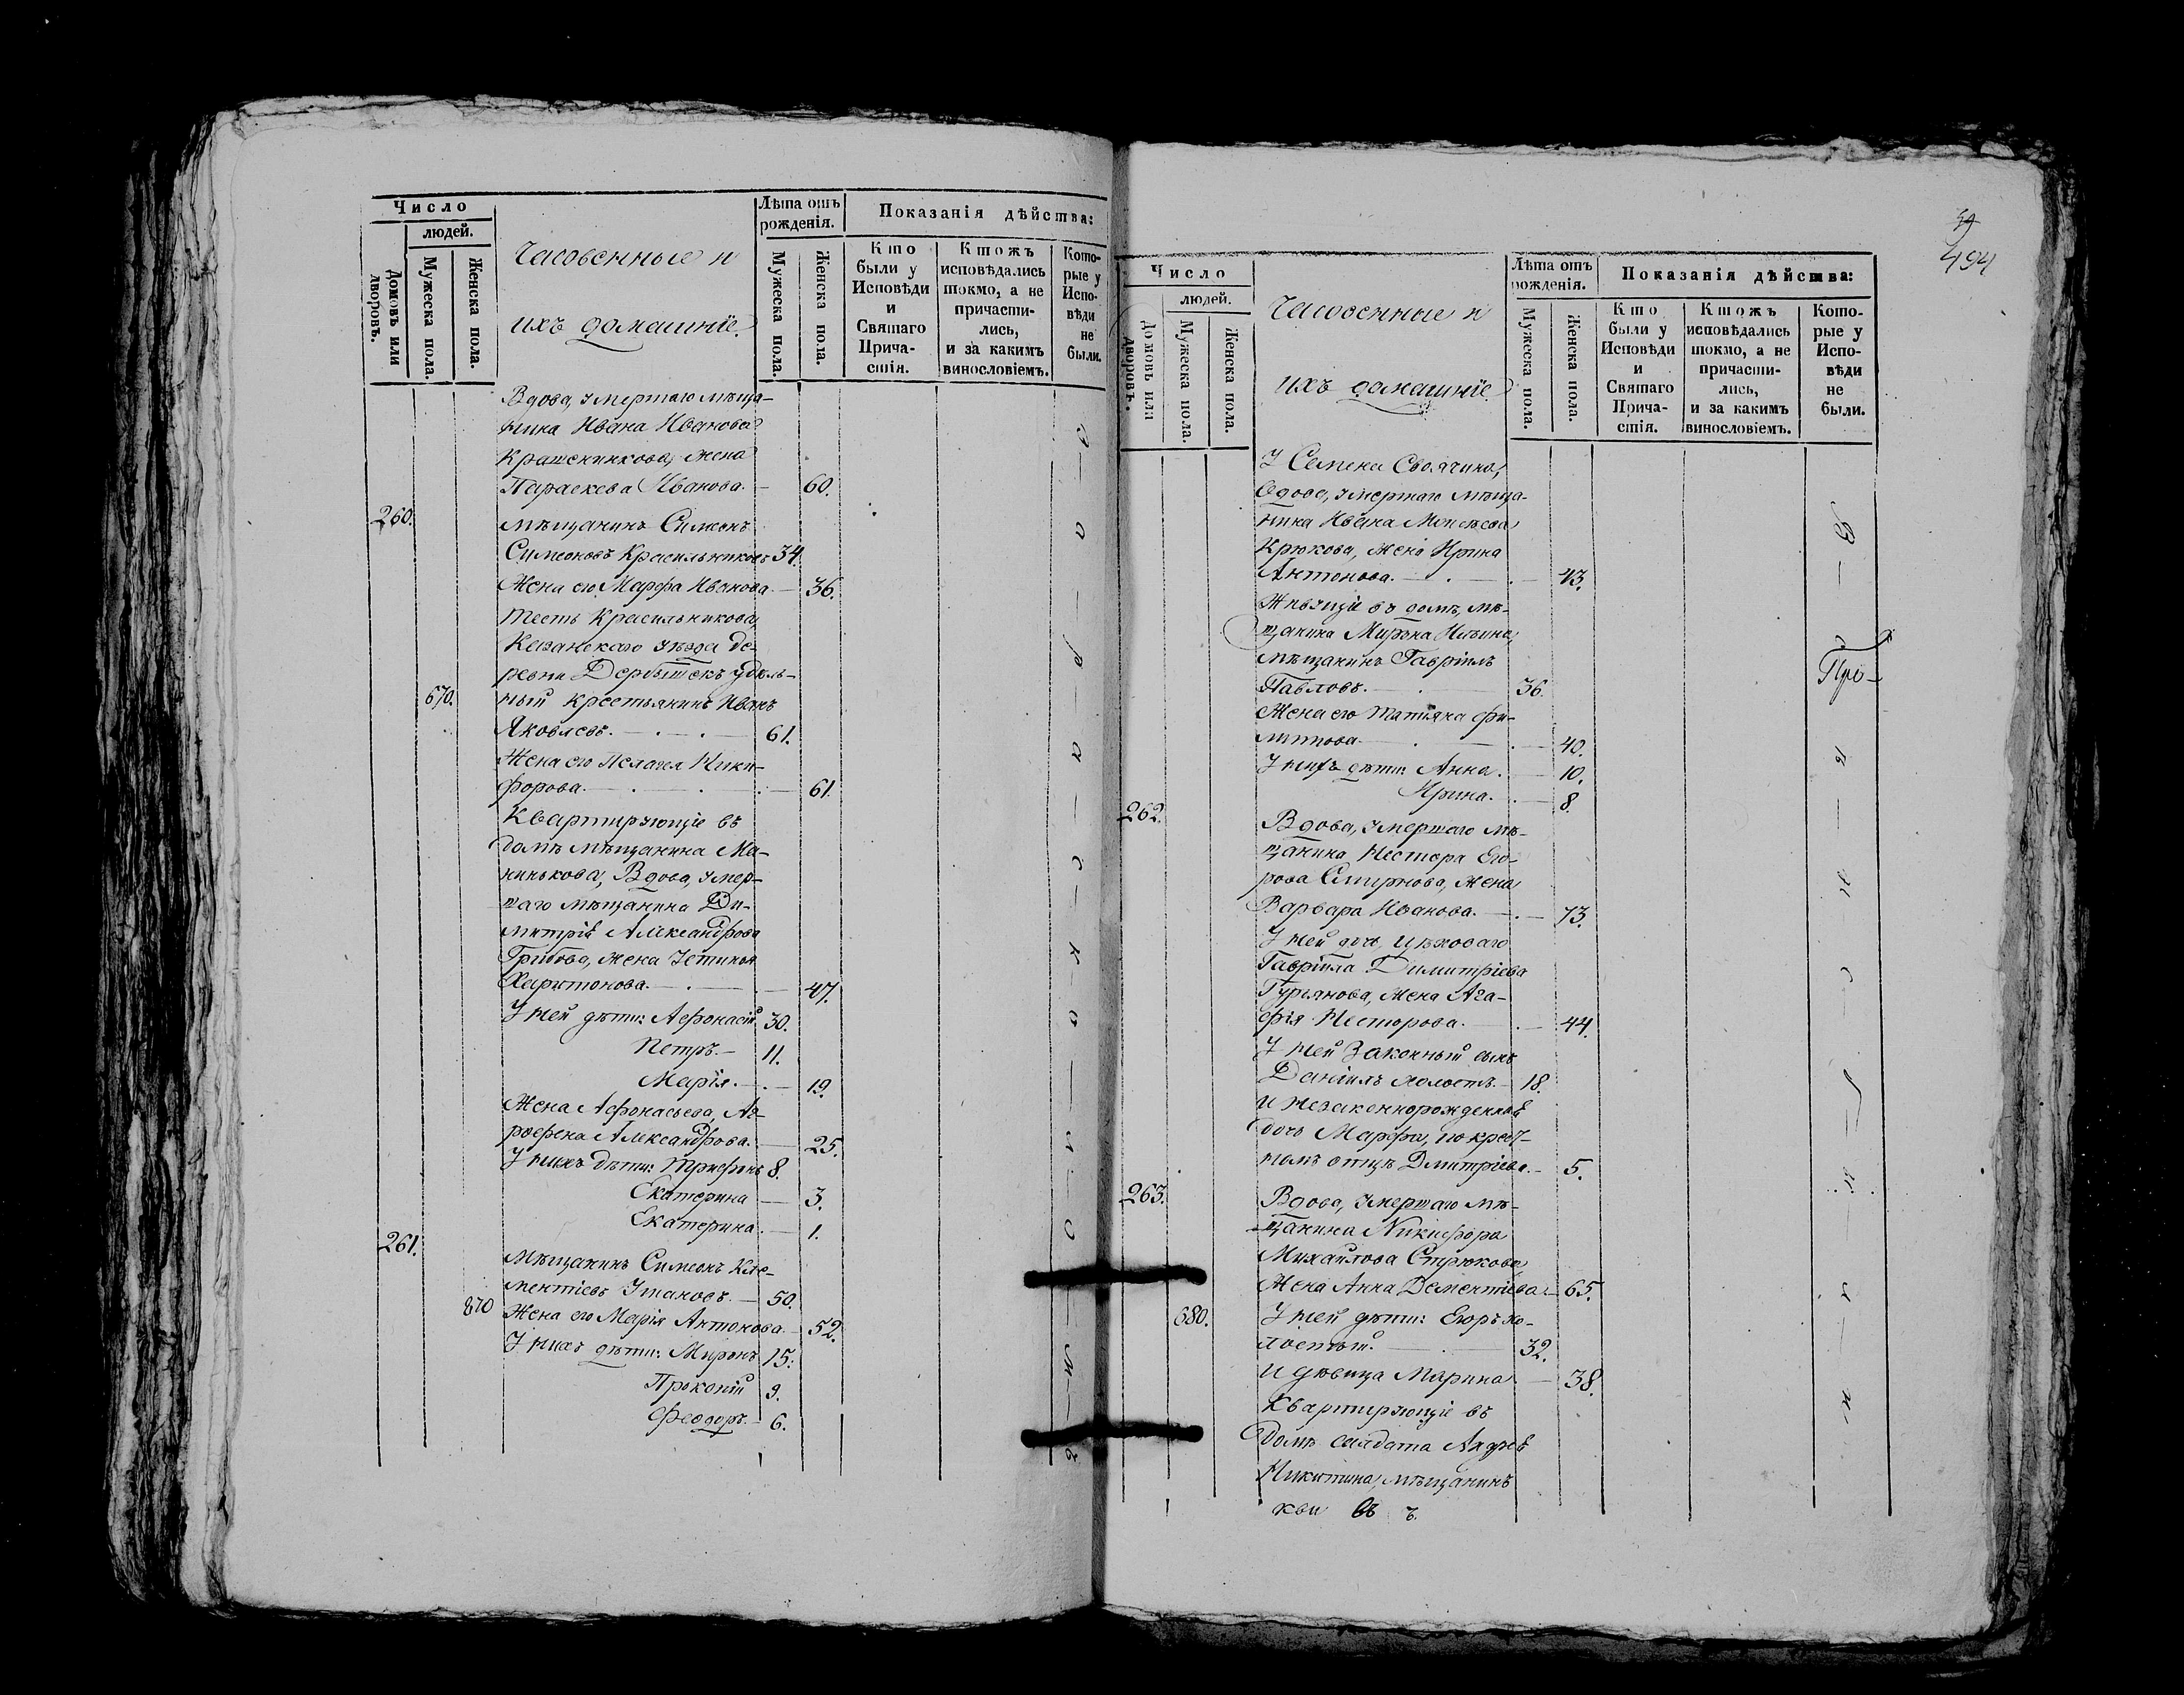 Число
людей.
Домовъ или дворовъ.
Мужеска пола.
Женска пола.
Часовенные и
ихъ домашніе
Лѣта отъ
рожденія.
Мужеска пола.
Женска пола.
Показанія дѣйства:
Кто
были у
Исповѣди
и
Святаго
Прича-
стія.
Ктожъ
исповѣдались
токмо, а не
причасти-
лись,
и за какимъ
винословіемъ.
Кото-
рые у
Испо-
вѣди
не
были.
Вдова, умершаго мѣща-
нина Ивана Иванова
Крашенинкова, жена
Параскева Иванова. — 60.
260.
Мѣщанинъ Симеонъ
Симеоновъ Красильниковъ 34.
Жена его Марфа Иванова — 36.
Тесть Красильникова,
Казанскаго уѣзда де-
ревни Дербышекъ удѣль-
670. ный крестьянинъ Иванъ
Яковлевъ. — . — . — 61.
Жена его Пелагея Ники-
форова. — . — . — 61.
Квартирующіе въ
домѣ мѣщанина Ма-
нинькова, Вдова, умер-
шаго мѣщанина Ди-
митрія Александрова
Грибова, жена Устинья
Харитонова. — . — 47.
У ней дѣти: Афонасій 30.
Петръ. — 11.
Марія. — . — 19.
Жена Афонасьева, Аг-
рофена Александрова. — 25.
У нихъ дѣти: Трифонъ 8.
Екатерина — 3.
Екатерина. — 1.
261.
Мѣщанинъ Симеонъ Кле-
ментіевъ Ушановъ. — 50.
870 Жена его Марія Антонова. — 52.
У нихъ дѣти: Миронъ 15.
Прокопій 9.
Феодоръ. — 6.
494
Число
людей.
Домовъ или дворовъ.
Мужеска пола.
Женска пола.
Часовенные и
ихъ домашніе
Лѣта отъ
рожденія.
Мужеска пола.
Женска пола.
Показанія дѣйства:
Кто
были у
Исповѣди
и
Святаго
Прича-
стія.
Ктожъ
исповѣдались
токмо, а не
причасти-
лись,
и за какимъ
винословіемъ.
Кото-
рые у
Испо-
вѣди
не
были.
У Семена
Вдова, умершаго мѣща-
нина Ивана Моисѣева
Крюкова, жена Ирина
Антонова. — . — . — 43.
Живущіе въ домѣ, мѣ-
щанина Мирона Ильина,
мѣщанинъ Гавріилъ
Павловъ. — . — 36.
Жена его Татіяна Фи-
липпова. — . — . — 40.
У нихъ дѣти: Анна. — 10.
Ирина. . — 8.
262.
Вдова, умершаго мѣ-
щанина Нестера Его-
рова Смирнова, жена
Варвара Иванова. — . — 73.
У ней дочь, цѣховаго
Гавріила Димитріева
Гурьянова, жена Ага-
фія Несторова. — . — 44.
У ней законный сынъ
Даніилъ холостъ. — 18.
и незаконнорожденная
дочь Марфа, по крест-
номъ отцѣ Дмитріева. — 5.
263.
Вдова, умершаго мѣ-
щанина Никифора
Михайлова Стрюкова,
Жена Анна Дементіева. — 65.
680. У ней дѣти: Егоръ хо-
лостый. — . — 32.
и дѣвица Марина — 38.
Квартирующіе въ
домѣ салдата Андрея
Никитина, мѣщанинъ